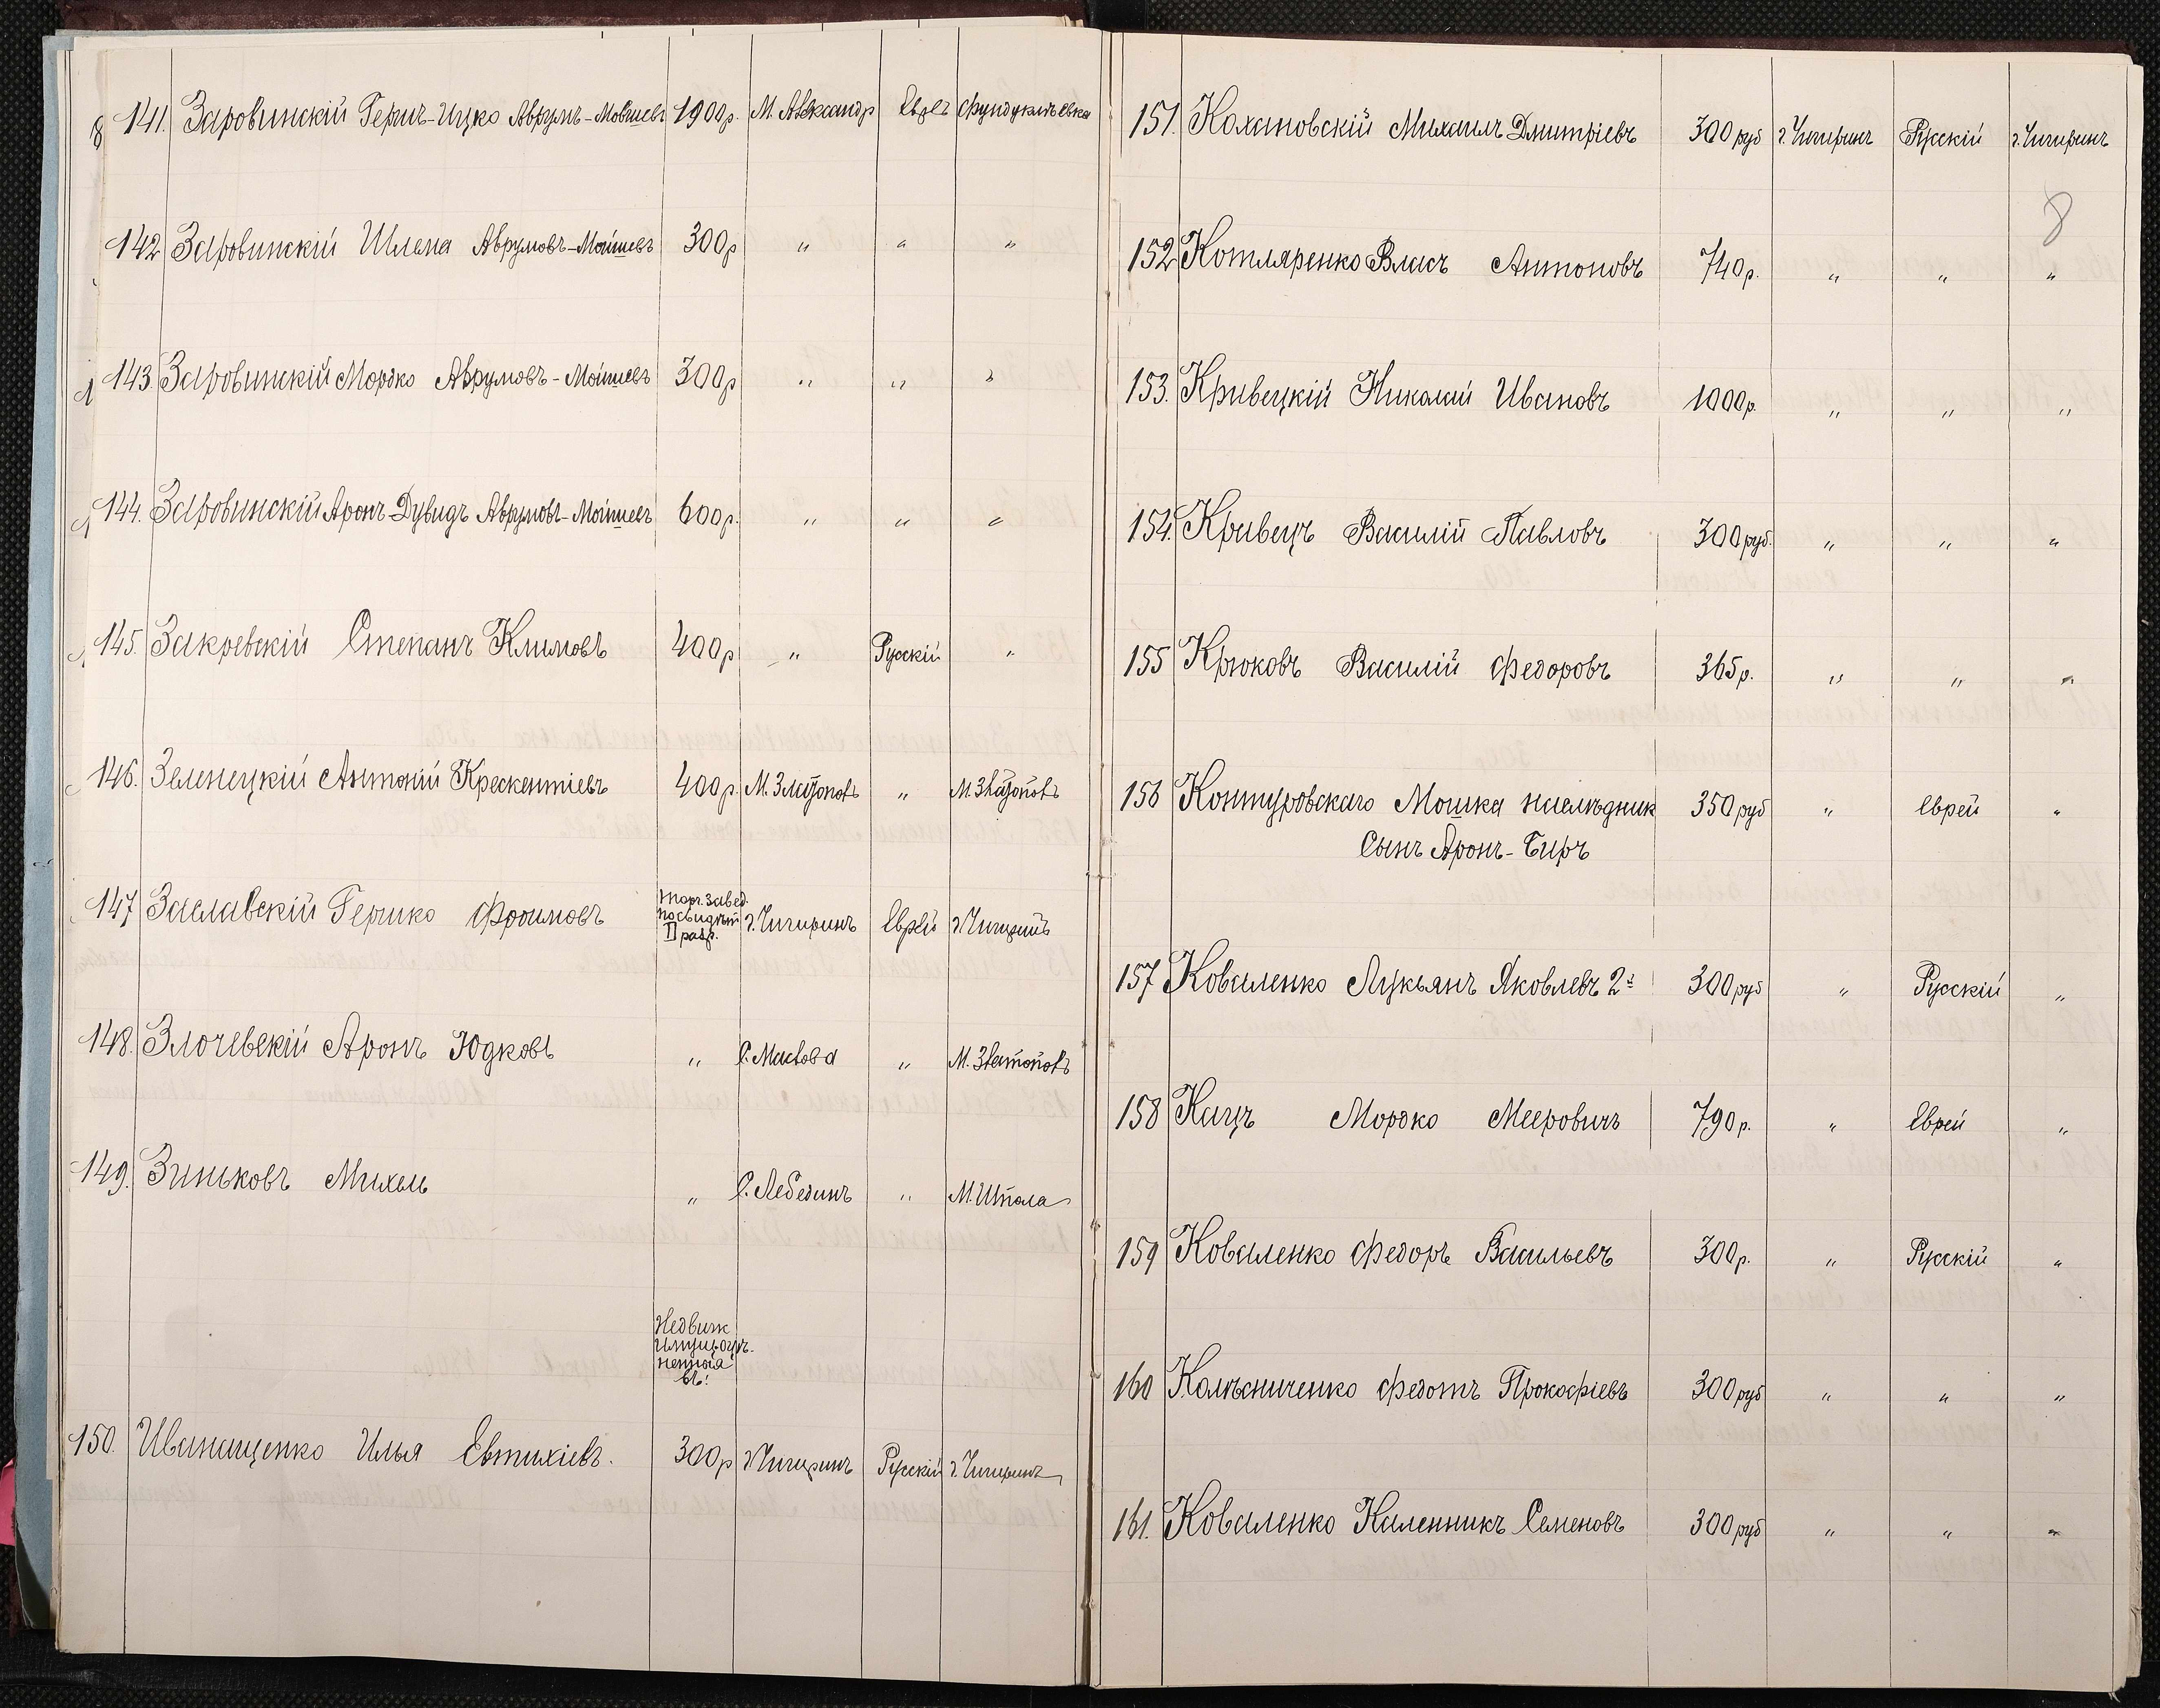 141. Заровинскій Гершъ-Ицко Аврумъ-Мовшевъ 1900р. М. Александр Еврей Фундуклѣевка
142 Заровинскій Шлема Аврумовъ-Мойшевъ 300р " " "
143. Заровинскій Мордко Аврумовъ-Мойшевъ 300р " " "
144. Заровинскій Аронъ-Дувидъ Аврумовъ-Мойшевъ 600р. " " "
145. Закревскій Степанъ Климовъ 400р " Русскій "
146. Зеленецкій Антоній Крескентіевъ 400р. М. Златополь " М. Златополь
147 Заславскій Гершко Фроимовъ Торг. завед. по свидѣт II разр. г. Чигиринъ Еврей г. Чигиринъ
148. Злочевскій Аронъ Юдковъ " С. Маслова " М. Златополь
149. Зиньковъ Михель " С. Лебединъ " М. Шпола
Недвиж
имущ. оцѣ-
ненная
въ:
150. Иванащенко Илья Евтихіевъ. 300р г. Чигиринъ Русскій г. Чигиринъ
151. Кохановскій Михаилъ Дмитріевъ 300 руб г. Чигиринъ Русскій г. Чигиринъ
8
152 Котляренко Власъ Антоновъ 740р. " " "
153. Кривецкій Николай Ивановъ 1000р. " " "
154. Кривецъ Василій Павловъ 300 руб. " " "
155 Крюковъ Василій Федоровъ 365р. " " "
156 Контуровскаго Мошка наслѣдник 350 руб " Еврей "
Сынъ Аронъ-Беръ
157 Коваленко Лукьянъ Яковлевъ 2й 300 руб " Русскій "
158 Кацъ Мордко Мееровичъ 790р. " Еврей "
159 Коваленко Федоръ Васильевъ 300р. " Русскій "
160 Колѣсниченко Федотъ Прокофіевъ 300 руб " " "
161. Коваленко Каленникъ Семеновъ 300 руб " " "